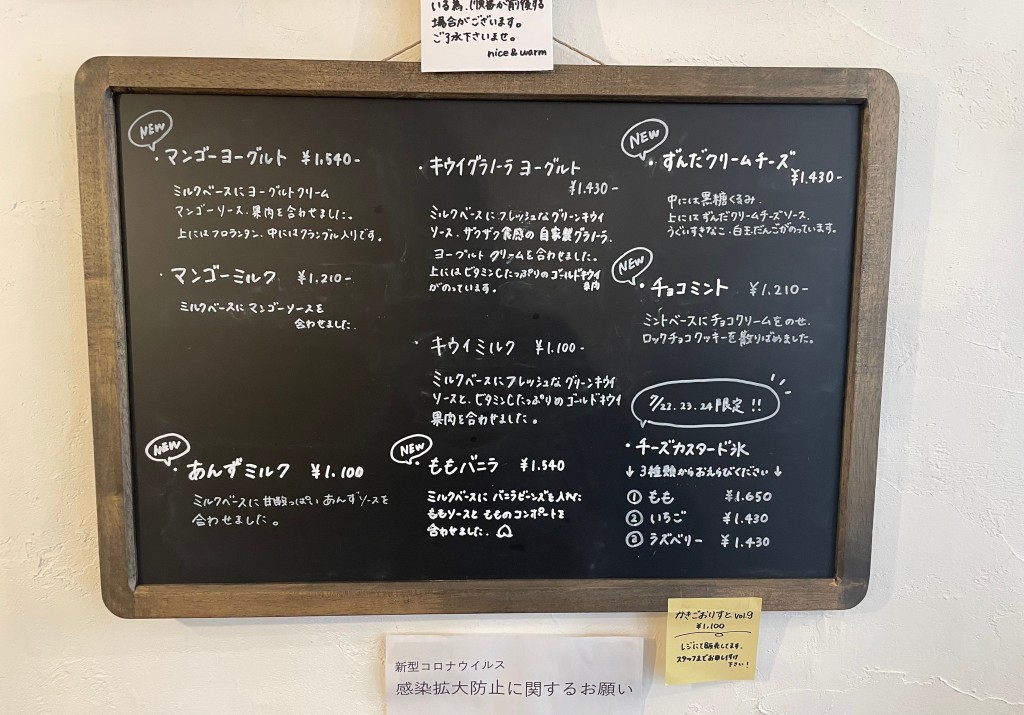 いる為、順番が前後する
場合がございます。
ご了承下さいませ。
nice & warm
NEW
・マンゴーヨーグルト ¥1.540-
ミルクベースにヨーグルトクリーム
マンゴーソース、果肉を合わせました。
上にはフロランタン、中にはクランブル入りです。
・マンゴーミルク ¥1.210-
ミルクベースにマンゴーソースを
合わせました.
NEW
・あんずミルク ¥1.100
ミルクベースに甘酸っぱい あんずソースを
合わせました。
・キウイグラノーラ ヨーグルト
¥1.430-
ミルクベースにフレッシュなグリーンキウイ
ソース、ザクザク食感の自家製グラノーラ、
ヨーグルト クリームを合わせました。
上にはビタミンCたっぷりのゴールドキウイ
果肉
がのっています。
・キウイミルク ¥1.100-
ミルクベースにフレッシュなグリーンキウイ
ソースと、ビタミンCたっぷりのゴールドキウイ
果肉を合わせました。
NEW
・ももバニラ ¥1.540
ミルクベースに バニラビーンズを入れた
ももソースと もものコンポートを
合わせました.
NEW
・ずんだクリームチーズ
¥1.430-
中には黒糖くるみ、
上にはずんだクリームチーズソース、
うぐいすきなこ、白玉だんごがのっています。
NEW
・チョコミント ¥1.210-
ミントベースにチョコクリームをのせ、
ロックチョコクッキーを散りばめました。
7/22.23.24 限定 !!
・チーズカスタード氷
↓ 3種類からおえらびください ↓
① もも ¥1.650
② いちご ¥1.430
③ ラズベリー ¥1.430
かきごおりすと vol.9
¥1.100
レジにて販売してます。
スタッフまでお申し付け
下さい!
新型コロナウイルス
感染拡大防止に関するお願い